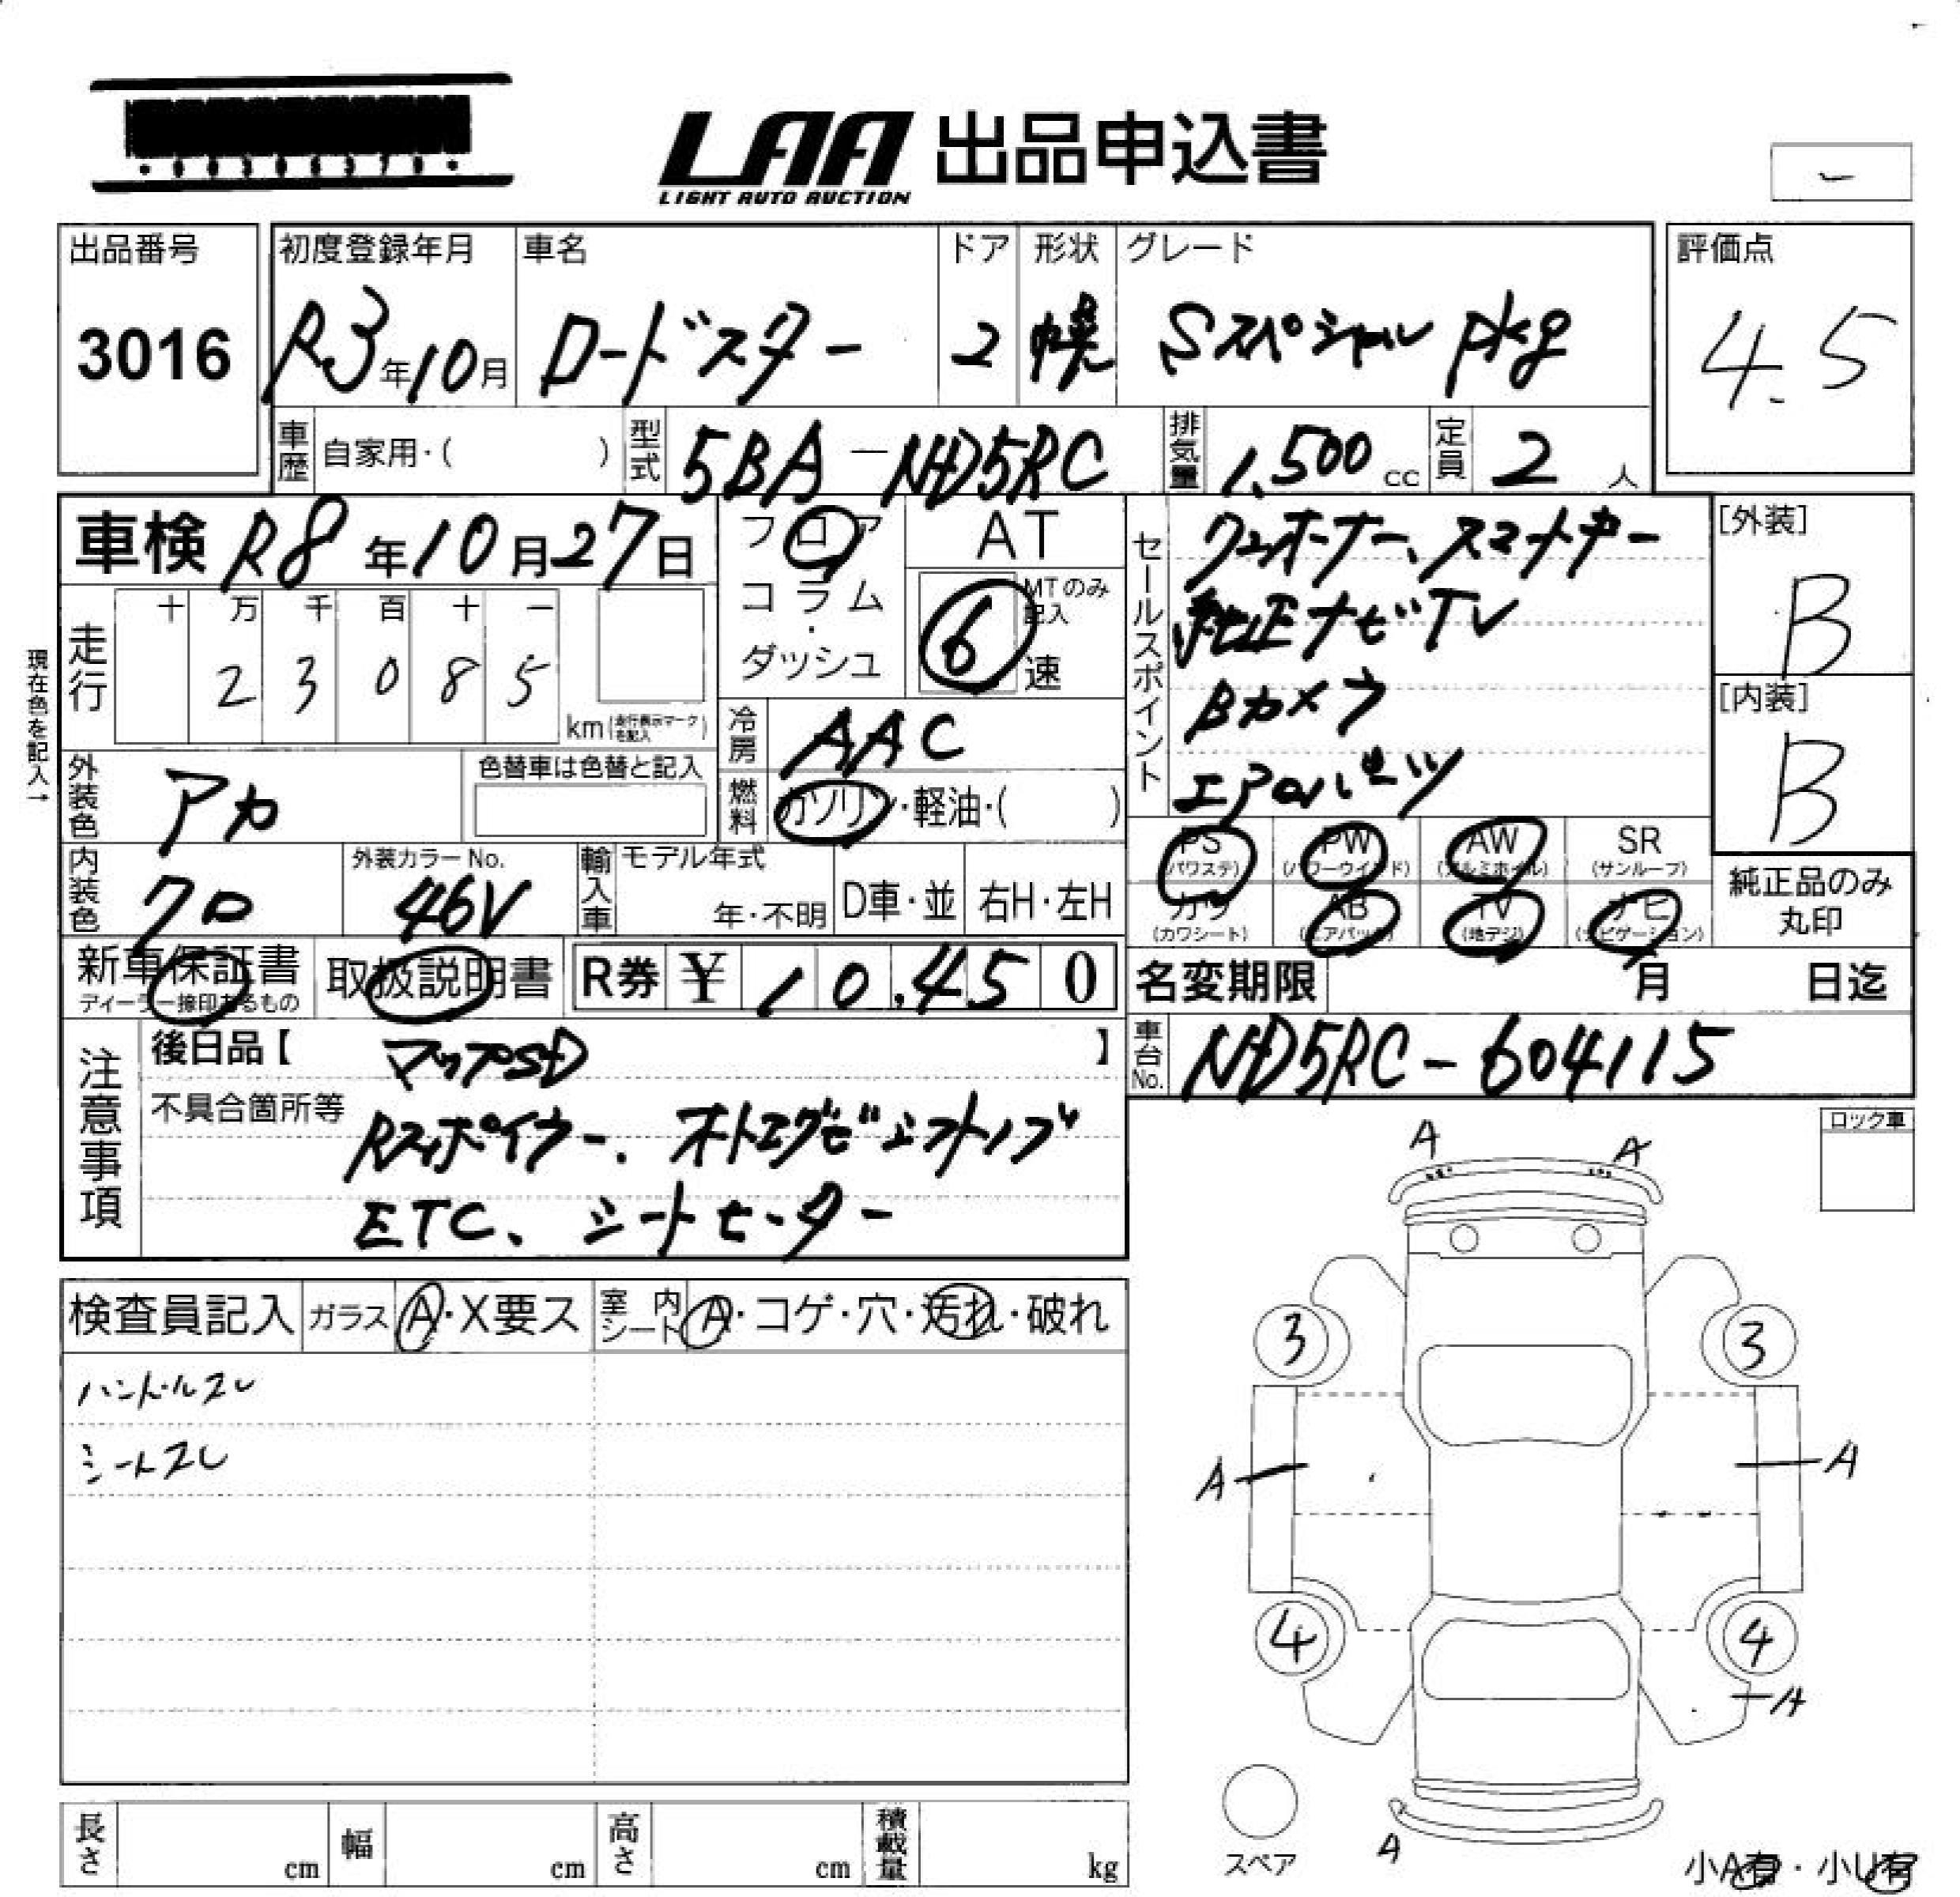 LAA 出品申込書
LIGHT AUTO AUCTION
出品番号
3016
初度登録年月 車名 ドア 形状 グレード
R3年10月 ロードスター 2 幌 Sスペシャル Pkg
評価点
4.5
車歴 自家用・( ) 型式 5BA-ND5RC 排気量 1,500cc 定員 2人
車検 R8年10月27日
フロア・コラム・ダッシュ
AT
MTのみ記入
6速
現在色を記入→
走行 十 万 千 百 十 一
2 3 0 8 5
km(走行表示マークを記入)
冷房 AAC
燃料 ガソリン・軽油・( )
外装色 アカ
色替車は色替と記入
内装色 クロ
外装カラーNo. 46V
輸入車 モデル年式 年・不明 D車・並 右H・左H
新車保証書
ディーラー捺印あるもの
取扱説明書
R券 ¥ 10,450
セールスポイント
ワンオーナー、スマートキー
純正ナビTV
Bカメラ
エアロパーツ
[外装]
B
[内装]
B
PS(パワステ) PW(パワーウインド) AW(アルミホイル) SR(サンルーフ)
カワ(カワシート) AB(エアバック) TV(地デジ) ナビ(ナビゲーション)
純正品のみ丸印
名変期限 月 日迄
車台No. ND5RC-604115
注意事項
後日品【 マップSD 】
不具合箇所等
Rスポイラー、オートエグゼシフトノブ
ETC、シートヒーター
ロック車
検査員記入 ガラス A・X要ス 室内シート A・コゲ・穴・汚れ・破れ
ハンドルスレ
シートスレ
A A
3 3
A A
4 4
A
A
スペア
小A有・小U有
長さ cm 幅 cm 高さ cm 積載量 kg